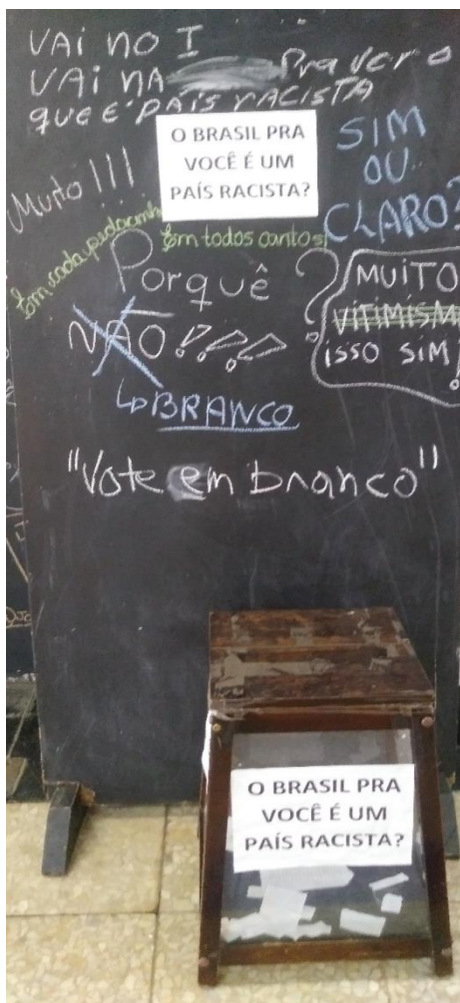 VAi no I
VAi NA Pra ver o
que é país racista
O BRASIL PRA
VOCÊ É UM
PAÍS RACISTA?
SIM
OU
CLARO?
Muito!!!
Em cada pedacinho
Em todos cantos!
Porquê?
NÃO!!!!
↳BRANCO
MUITO
VITIMISM
isso sim!
"Vote em branco"
O BRASIL PRA
VOCÊ É UM
PAÍS RACISTA?